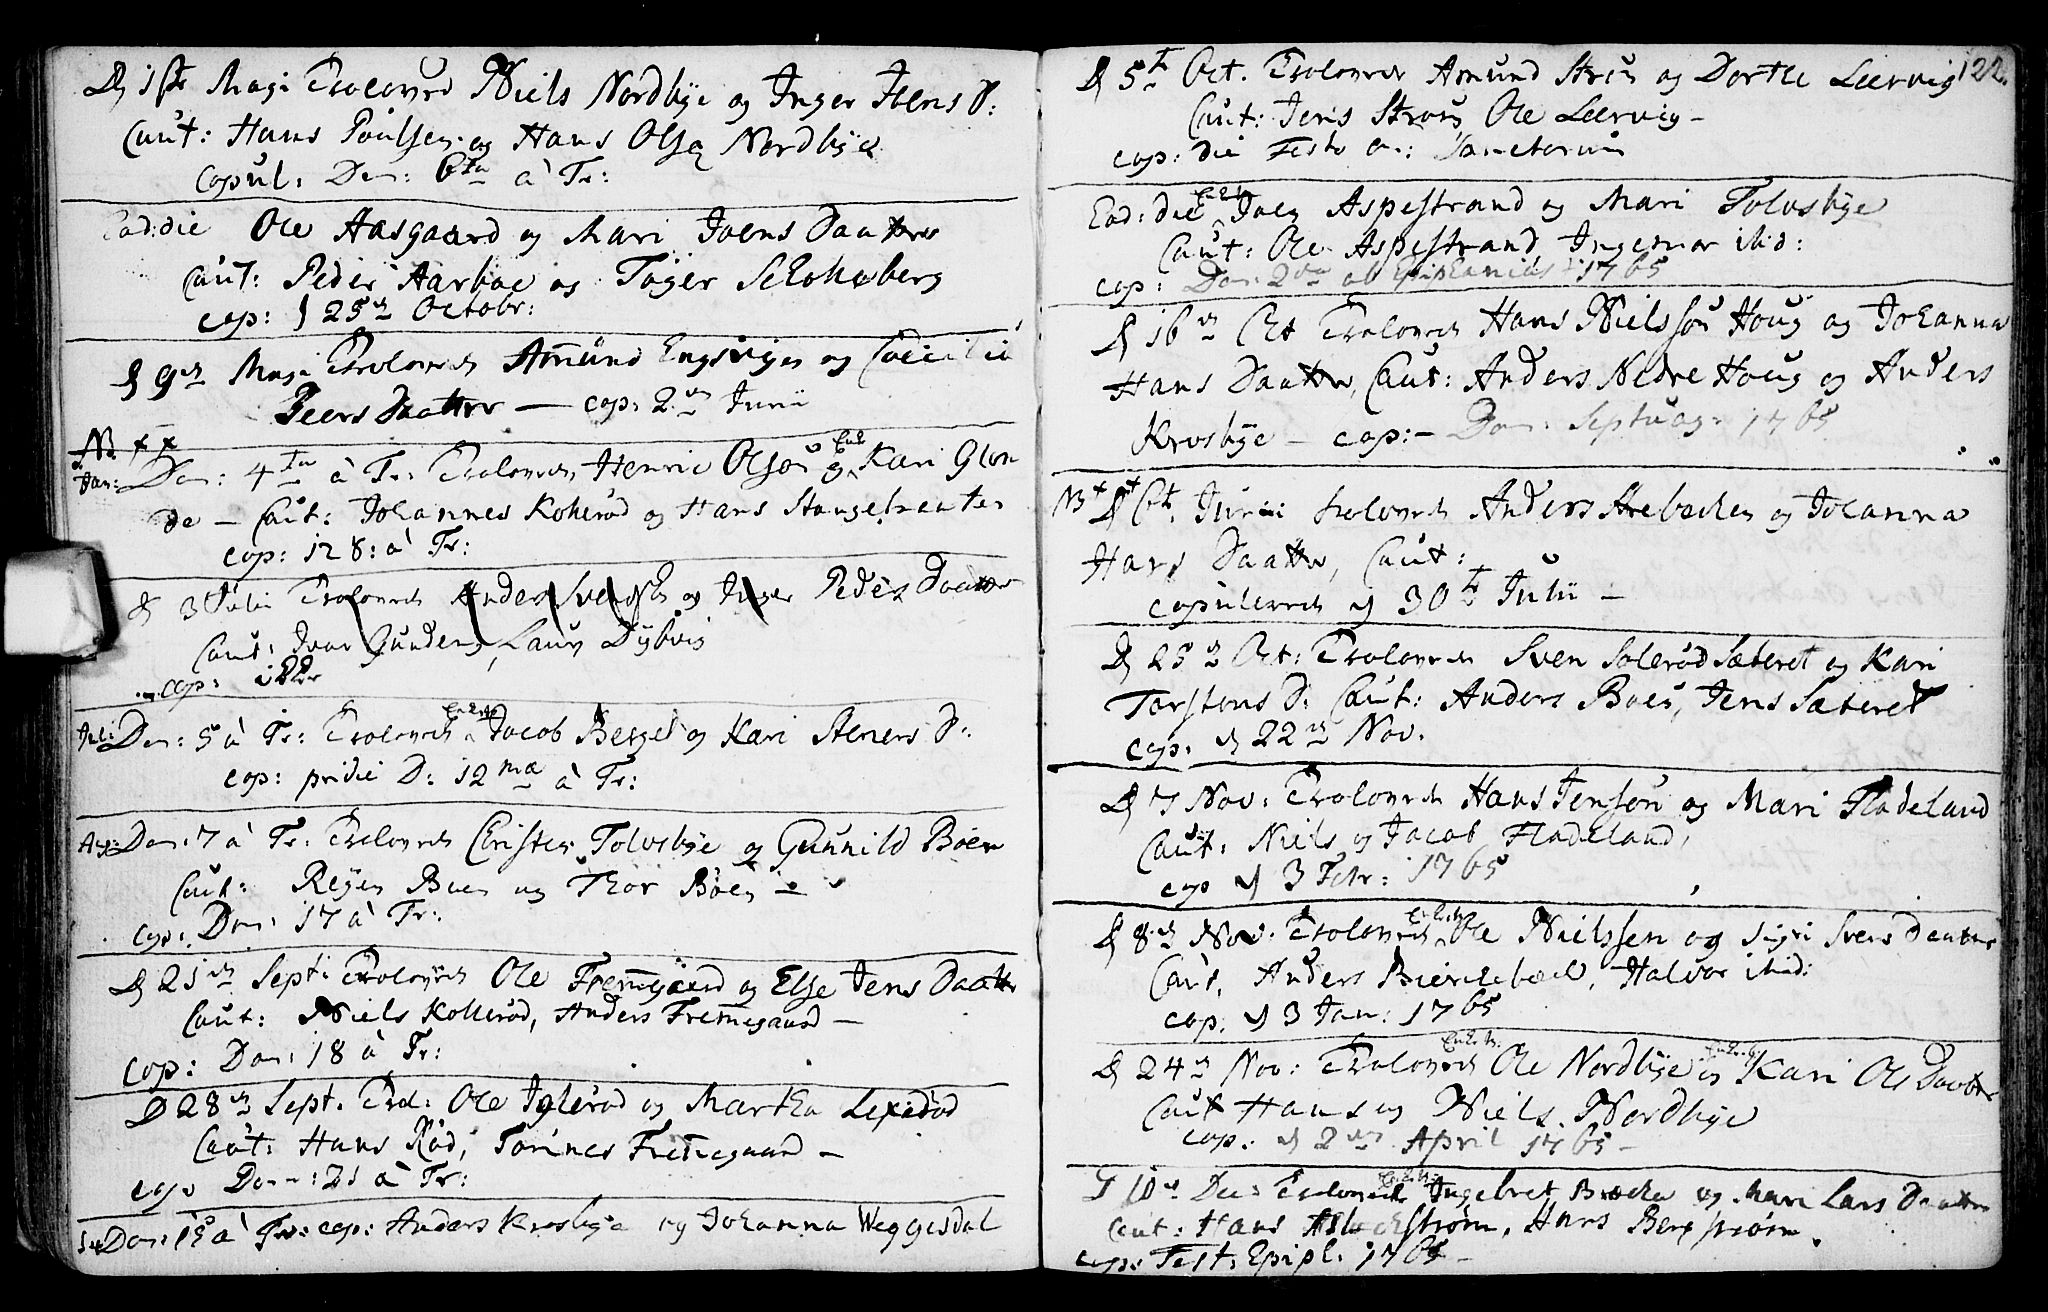 D 1ste Maji Trolovet Niels Nordbye og Inger Joens D:
Caut: Hans Poulsen og Hans Olsen Nordbye
Copul: Dom: 6ta à Tr:
Eod: die Ole Aasgaard og Mari Joens Daatter
Caut: Peder Aarboe og Töger
cop: d 25 Octobr:
D 9 Maji Trolovet Amund Engsvigen og Cæcilia
Peers Daatter — cop: 2 Junii
NB
Jan: Dom: 4ta à Tr: Trolovet Henric Olson og Kari Glen
de — Caut: Johannes Kokerød og Hans Stangebraaten
cop: 12 8: à Tr:
d 3 Julii Trolovet Anders Svendsen og Inger Peders Daatter
Caut: Iver Gunders, Laurs Dybvig
cop:
Jul: Dom: 5 à Tr: Trolovet Enkem. Jacob Berget og Kari Steners D:
cop: pridie D: 12 ma à Tr:
Aug: Dom: 7 à Tr: Trolovet Christen Tolvsbye og Gunnild Böen
Caut: Reyer Buen og Thor Böen —
cop: Dom: 17 à Tr:
D 21 Sept: Trolovet Ole Fremgaard og Else Jens Daatter
Caut: Niels Kollerød, Anders Fremegaard —
cop: Dom: 18 à Tr:
D 28 Sept. Trol: Ole Iglerød og Martha Lexerød
Caut: Hans Röd, Tönnes Fremegaard —
cop Dom: 21 à Tr:
Dom: 15 à Tr: cop: Anders Krosbye og Johanna Weggesdal
122.
D 5t Oct. Trolovet Amund Strøm og Dorthe Leervig
Caut: Jens Strøm Ole Leervig —
cop: die Festo Om: Sanctorum
Eod: die Enkem. Joen Aspestrand og Mari Tolvsbye
Caut: Ole Aspestrand Ingemar ibid:
cop: Dom: 2da ab Epiphanias 1765
D 16 Oct Trolovet Hans Nielssøn Houg og Johanna
Hans Daatter, Caut: Anders Nedre Houg og Anders
Krosbye — cop: — Dom: Septuag: 1765
NB D 6t. Junii trolovet Anders Strebechen og Johanna
Hans Daatter, Caut:
copuleret d 30t Julii —
D 25 Oct: Trolovet Sven Solerød Sæteret og Kari
Torstens D. Caut: Anders Boes, Jens Sæteret
cop. d 22 Nov.
D 7 Nov: Trolovet Hans Jensøn og Mari Fladeland
Caut: Niels og Jacob Fladeland,
cop d 3 Febr: 1765
D 8 Nov: Trolovet Enkem. Ole Nielssen og Sigri Svens Daatter
Caut, Anders Bierchebæch, Halvor ibid:
cop: d 3 Jan: 1765
D 24 Nov: Trolovet Enkem. Ole Nordbye og Kari Ols Daatter
Caut Hans og Niels Nordbye
cop: d 2 April 1765 —
D 10 Dec: Trolovet Enkem. Ingebret Bæche og Mari Lars Daatter
Caut: Hans Aslachstrøm, Hans Bergstrøm.
cop: Fest: Epiph: 1765 —